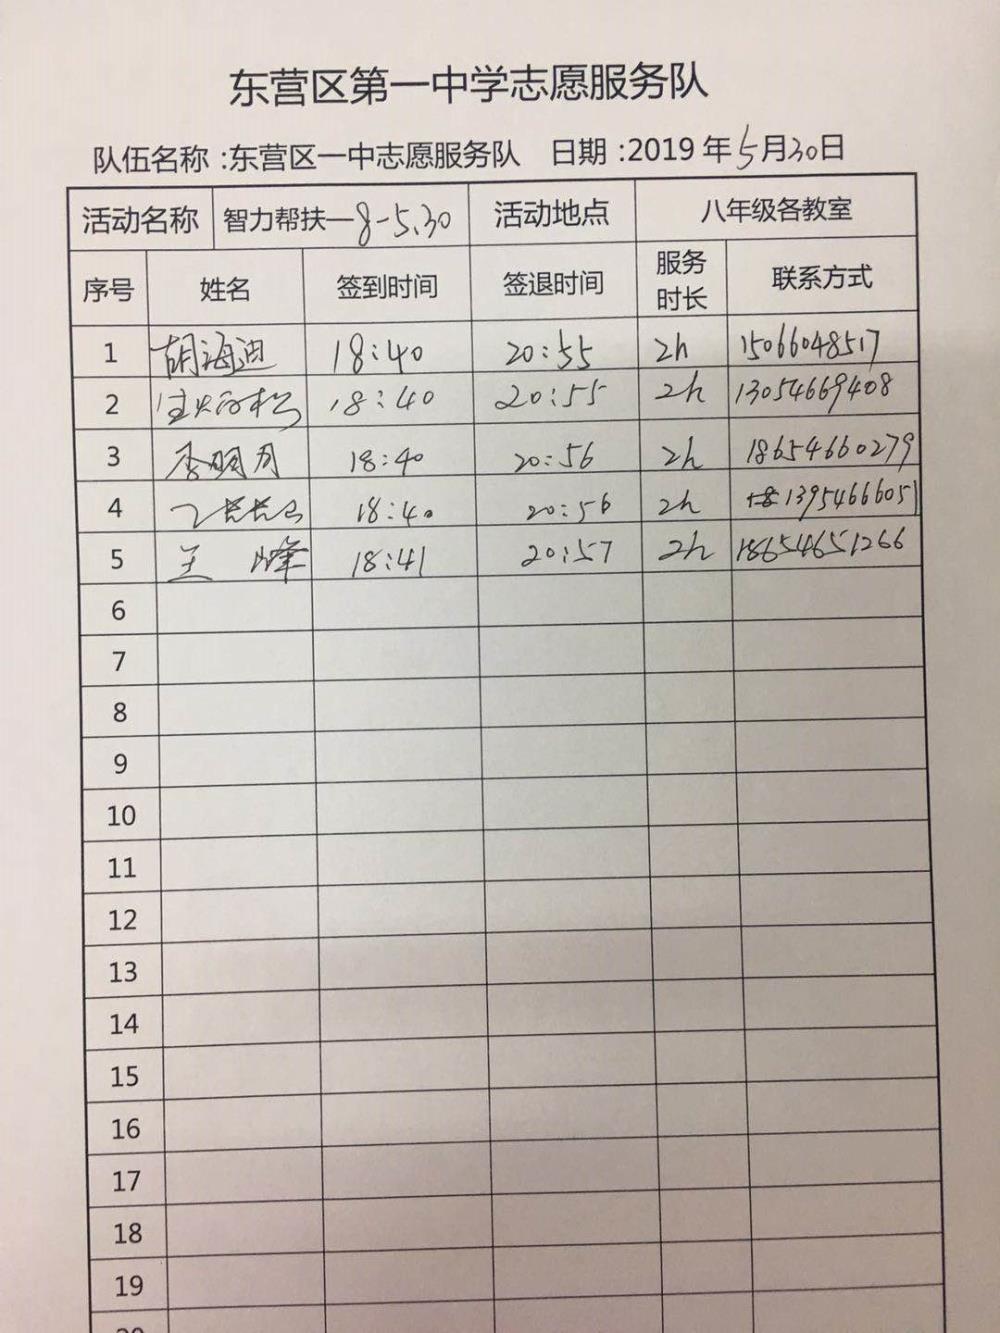 东营区第一中学志愿服务队
队伍名称:东营区一中志愿服务队 日期:2019年5月30日
活动名称 智力帮扶—8-5.30 活动地点 八年级各教室
序号 姓名 签到时间 签退时间 服务时长 联系方式
1 胡海迪 18:40 20:55 2h 15066048517
2 18:40 20:55 2h 13054669408
3 李明月 18:40 20:56 2h 18654660279
4 18:40 20:56 2h 13954666051
5 王峰 18:41 20:57 2h 18654651266
6
7
8
9
10
11
12
13
14
15
16
17
18
19
20